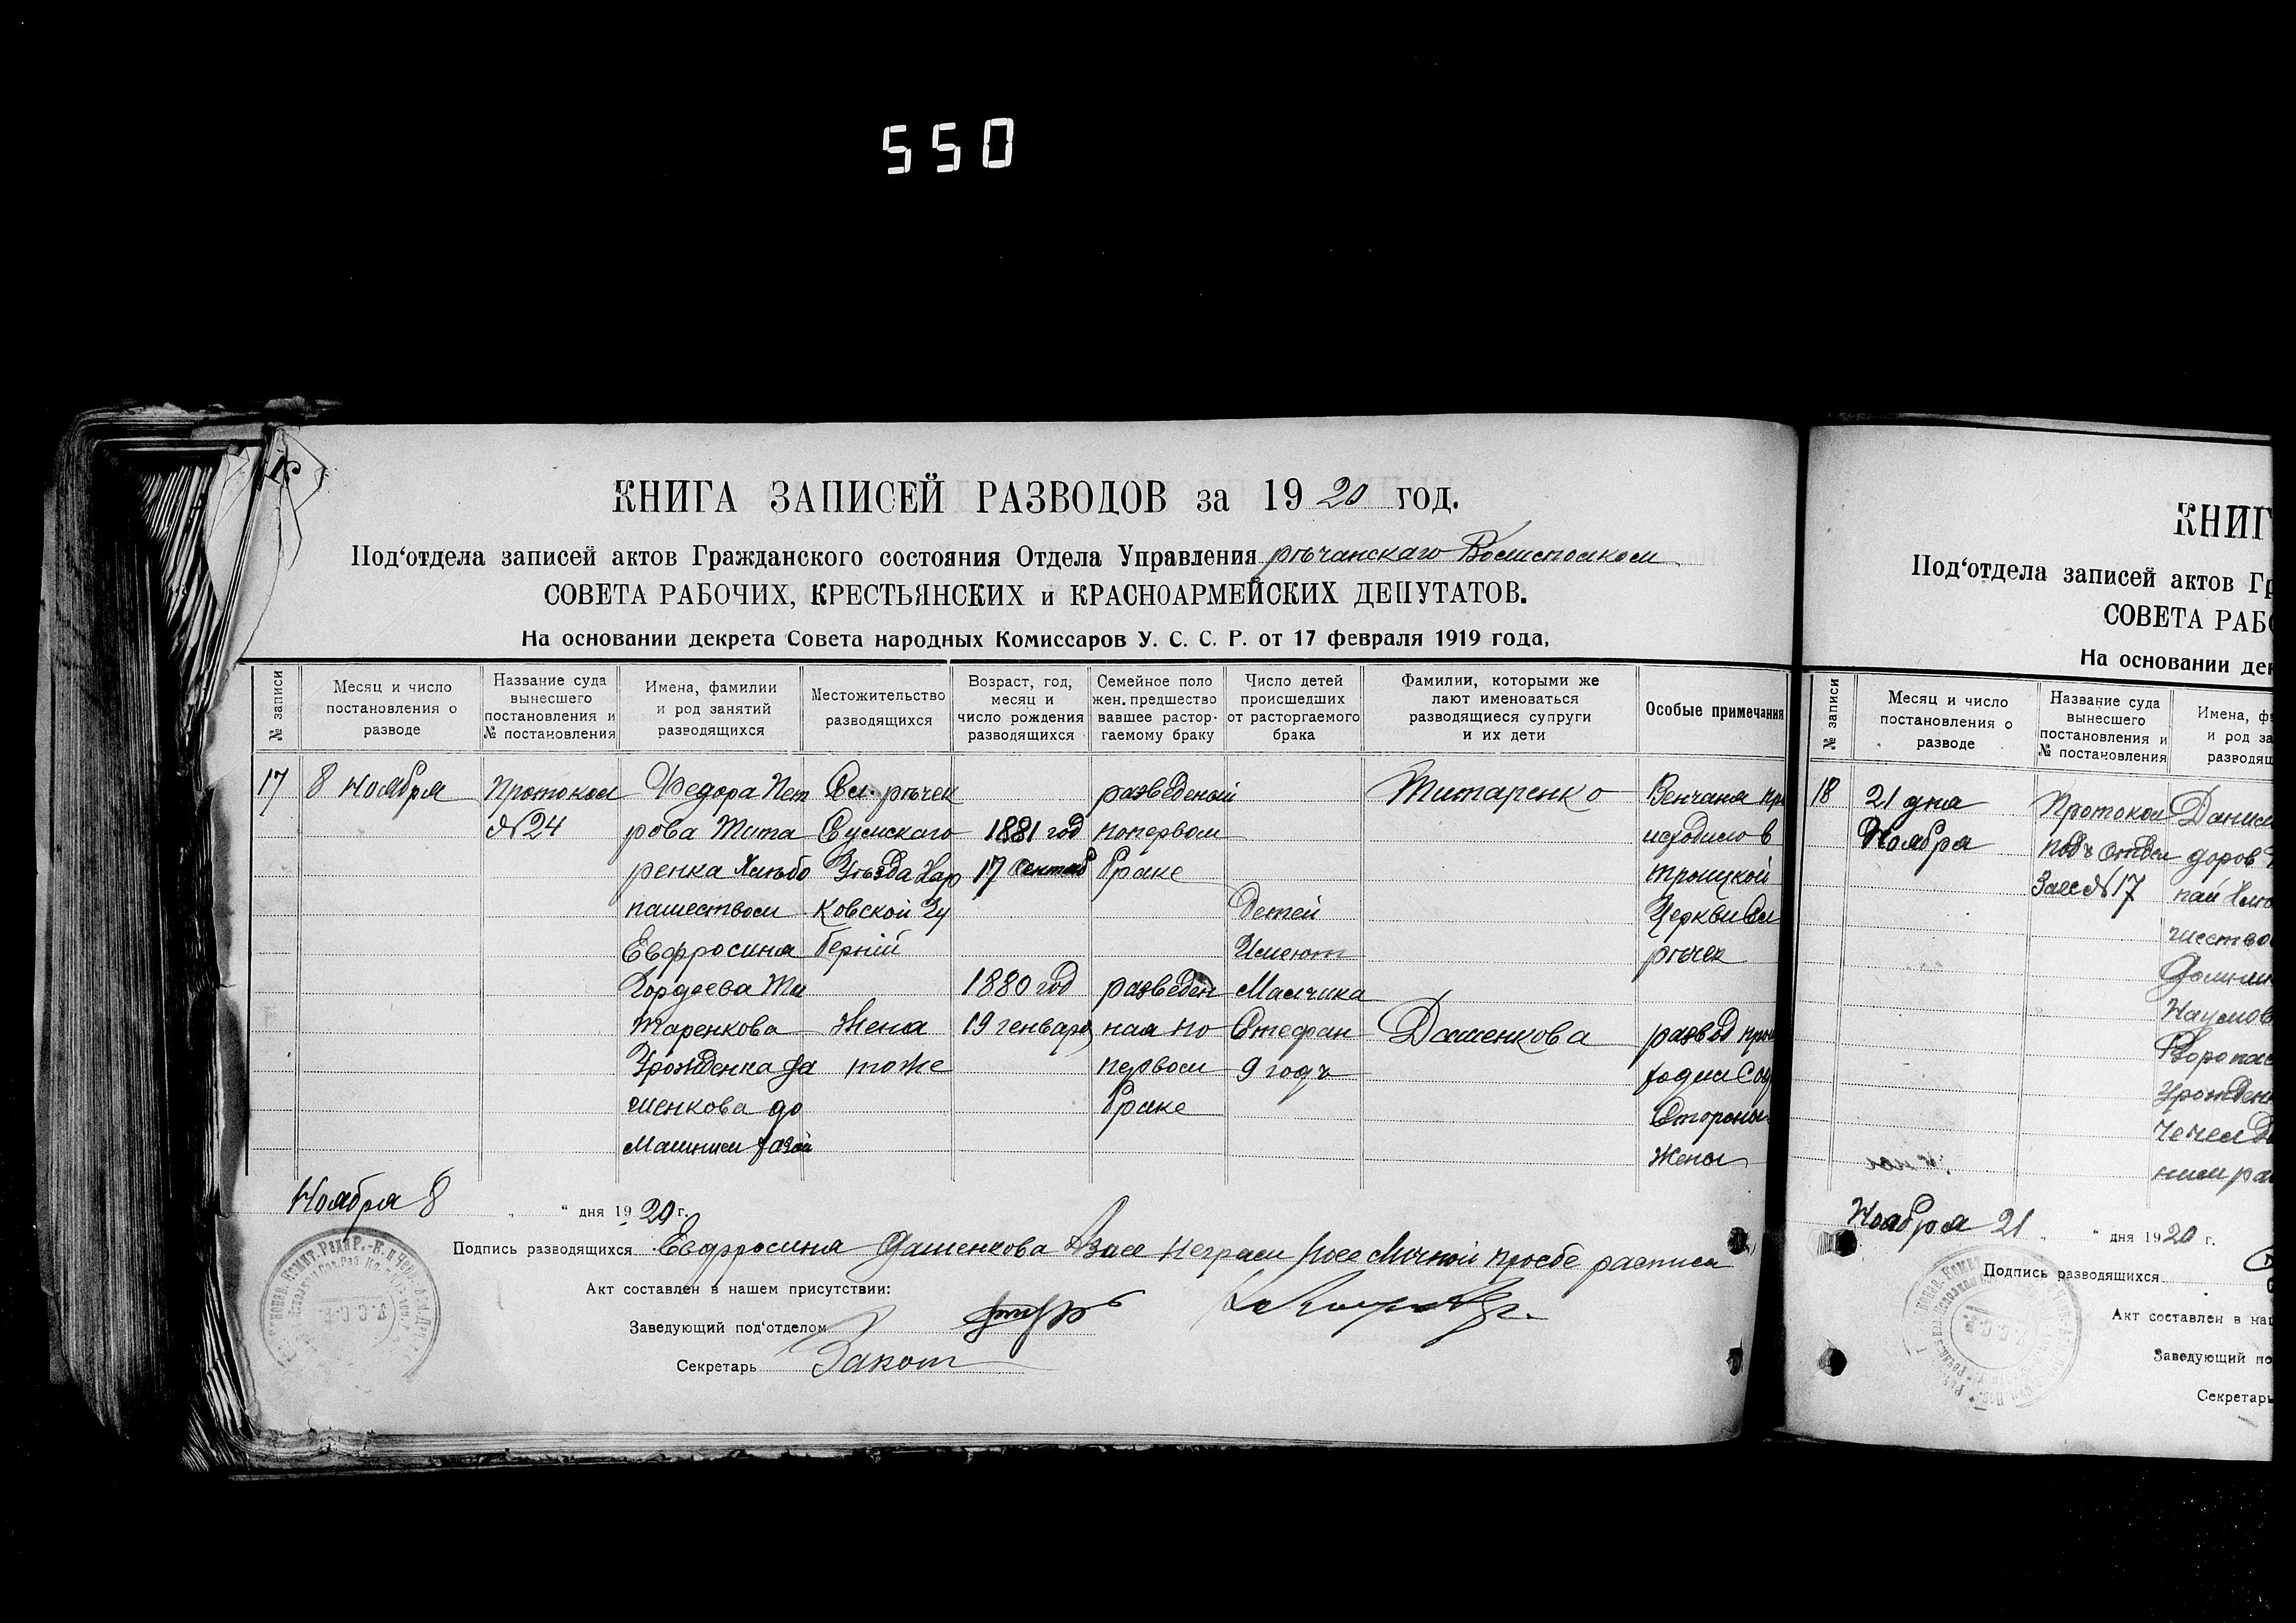 550
КНИГА ЗАПИСЕЙ РАЗВОДОВ за 1920 год.
Под‘отдела записей актов Гражданского состояния Отдела Управления рѣчанскаго Волисполком
СОВЕТА РАБОЧИХ, КРЕСТЬЯНСКИХ и КРАСНОАРМЕЙСКИХ ДЕПУТАТОВ.
На основании декрета Совета народных Комиссаров У. С. С. Р. от 17 февраля 1919 года,
№ записи
Месяц и число
постановления о
разводе
Название суда
вынесшего
постановления и
№ постановления
Имена, фамилии
и род занятий
разводящихся
Местожительство
разводящихся
Возраст, год,
месяц и
число рождения
разводящихся
Семейное поло
жен. предшество
вавшее растор-
гаемому браку
Число детей
происшедших
от расторгаемого
брака
Фамилии, которыми же
лают именоваться
разводящиеся супруги
и их дети
Особые примечания
17
8 Ноября
Протокол
№ 24
Федора Пет
рова Тита
ренка Хлѣбо
пашеством
Евфросина
Гордеева Ти
таренкова
Урожденка Да
шенкова до
Машним
Сл. рѣчек
Сумскаго
Уѣзда Хар
ковской Гу
берній
Жена
тоже
1881 год
17 Сентяб
1880 год
19 генваря
разведеный
попервом
браке
разведен
ная по
первом
браке
Детей
Имеют
Малчика
Стефан
9 годъ
Титаренко
Дашенкова
Венчания пр
исходило в
троицкой
Церкви Сл
рѣчек
развод про
Стороны
Жены
Ноября 8 „ “ дня 1920 г.
Подпись разводящихся Евфросиния Дашенкова Азаее неграм поее Личной просбе расписа
Акт составлен в нашем присутствии:
Заведующий под‘отделом
Секретарь
КНИГ
Под‘отдела записей актов Гр
СОВЕТА РАБО
На основании дек
№ записи
Месяц и число
постановления о
разводе
Название суда
вынесшего
постановления и
№ постановления
Имена, ф
и род за
разводящ
18
21 дня
Ноября
Протокол
подъ Отдел
Загс № 17
Данил
доров
Наумов
Урожден
Ноября 21 „ “ дня 1920 г.
Подпись разводящихся
Акт составлен в на
Заведующий по
Секретарь